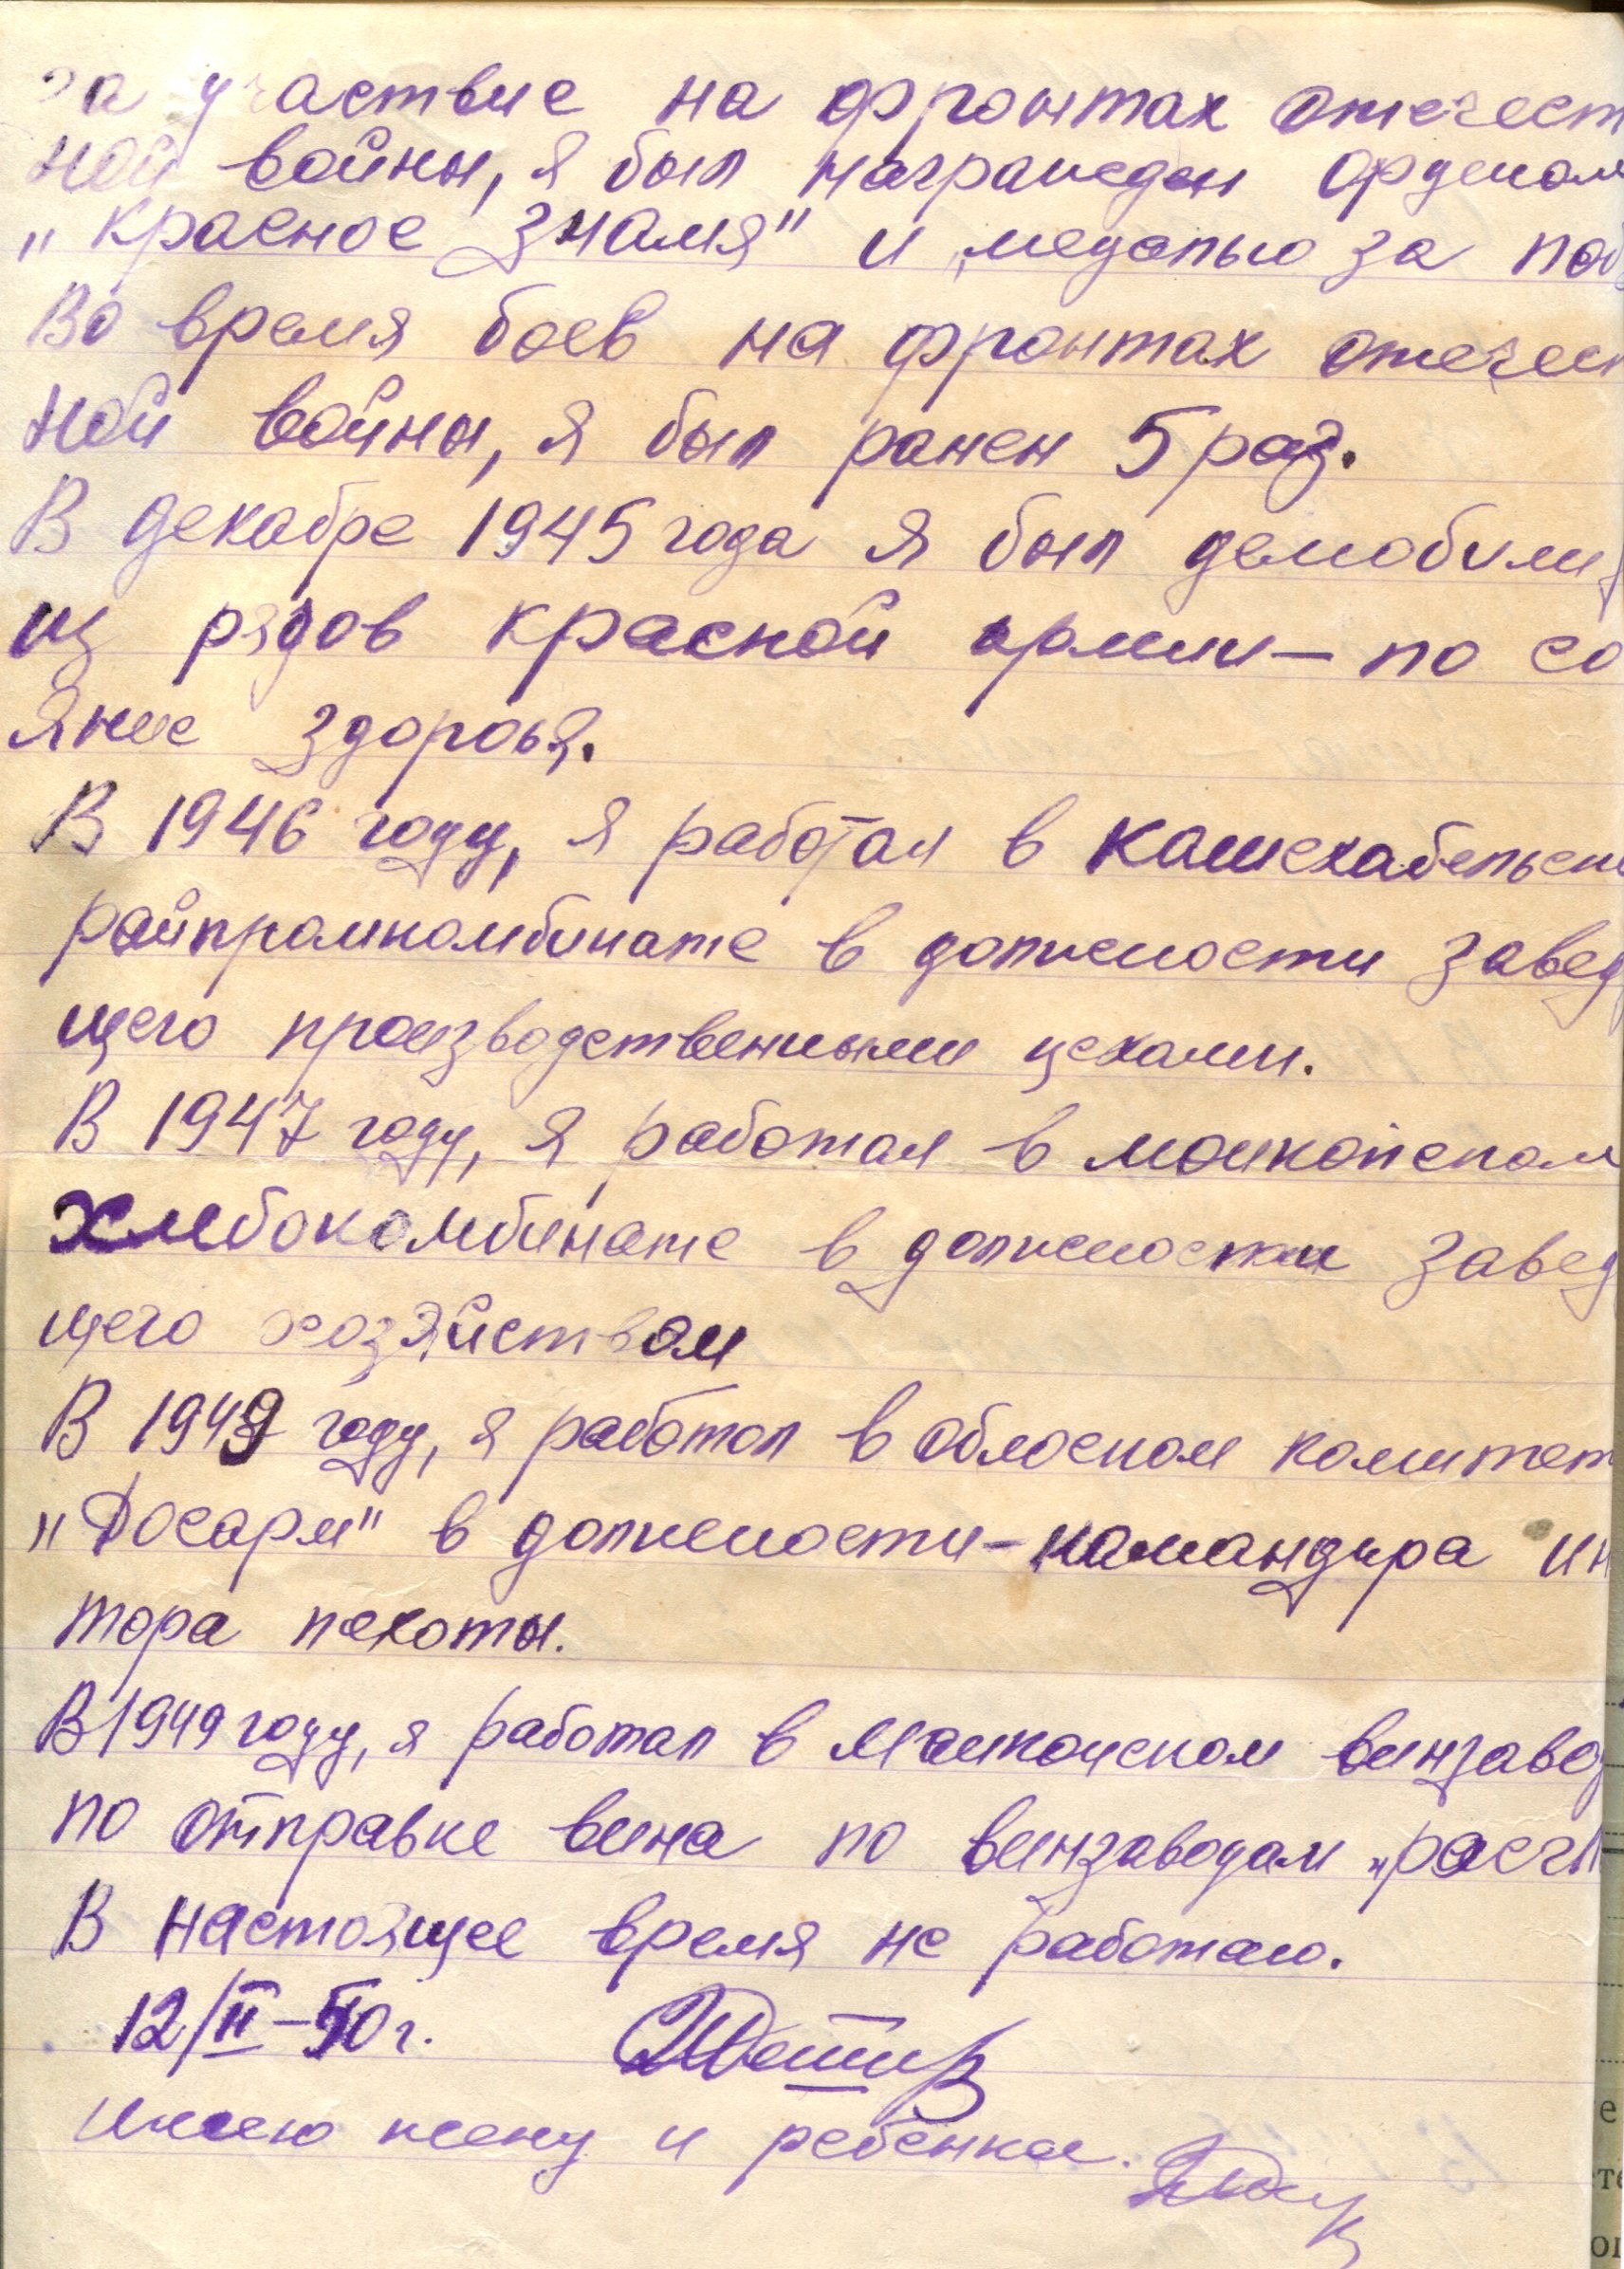 за участвие на фронтах отечест
ной войны, я был награжден орденом
„Красное знамя" и медалью за поб
Во время боев на фронтах отечест
ной войны, я был ранен 5 раз.
В декабре 1945 года я был демобилиз
из рядов красной армии – по со
яние здоровья.
В 1946 году, я работал в Кошехабельск
райпромкомбинате в должности завед
щего производственными цехами.
В 1947 году, я работал в майкопском
хлебокомбинате в должности завед
щего хозяйством
В 1949 году, я работал в облосном комитет
„Досарм" в должности – командира ин
тора пехоты.
В 1949 году, я работал в Майкопском винзавод
по отправке вина по винзаводам
В настоящее время не работаю.
12/II – 50 г.
имею жену и ребенка.